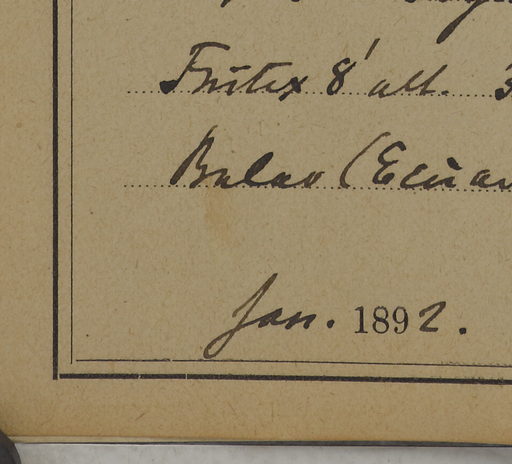 Frutex 8' alt.
Balao (Ecua
Jan. 1892.